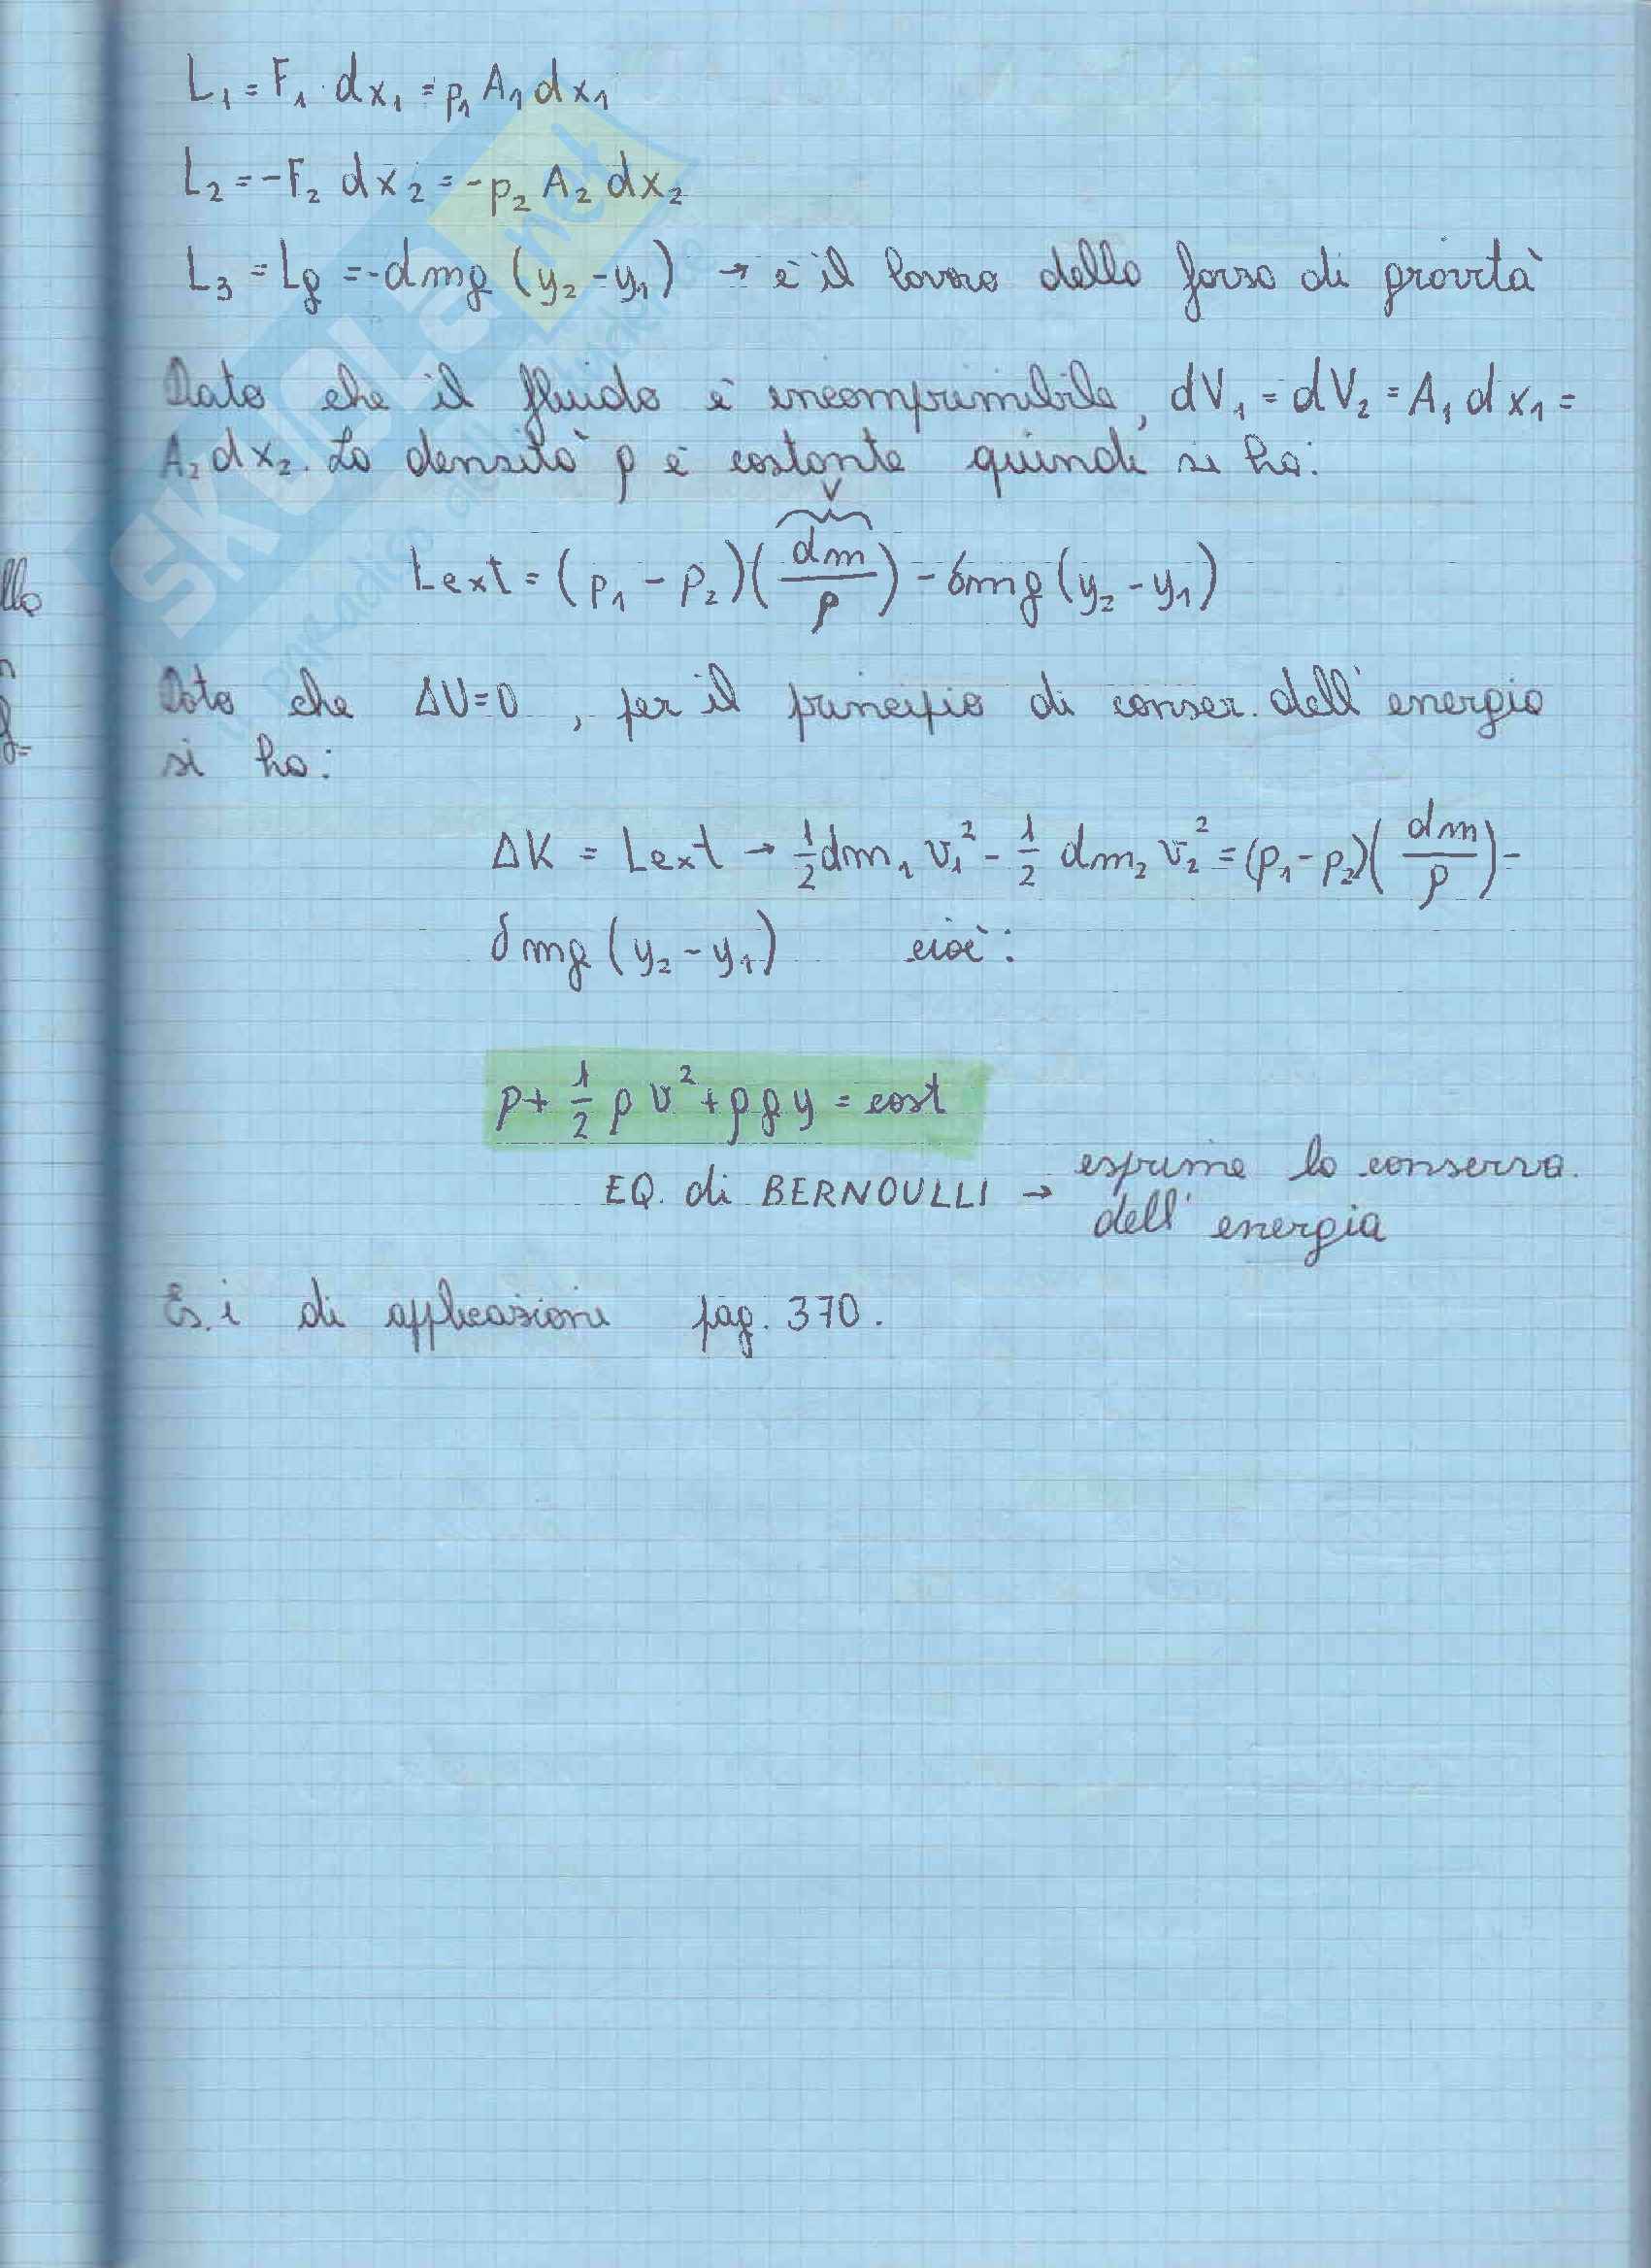 L₁ = F₁ · dx₁ = p₁ A₁ dx₁
L₂ = -F₂ dx₂ = -p₂ A₂ dx₂
L₃ = Lg = -dmg (y₂ - y₁) → è il lavoro della forza di gravità
Dato che il fluido è incomprimibile, dV₁ = dV₂ = A₁ dx₁ =
A₂ dx₂. La densità ρ è costante quindi si ha:
V
Lext = (p₁ - p₂)(dm/ρ) - δmg (y₂ - y₁)
Dato che ΔU=0, per il principio di conser. dell'energia
si ha:
ΔK = Lext → 1/2 dm₁ v₁² - 1/2 dm₂ v₂² = (p₁ - p₂)(dm/ρ) -
δmg (y₂ - y₁) cioè:
p + 1/2 ρ v² + ρ g y = cost
EQ. di BERNOULLI → esprime la conserva.
dell'energia
Es.i di applicazioni pag. 370.
SKUOLA.net
llo